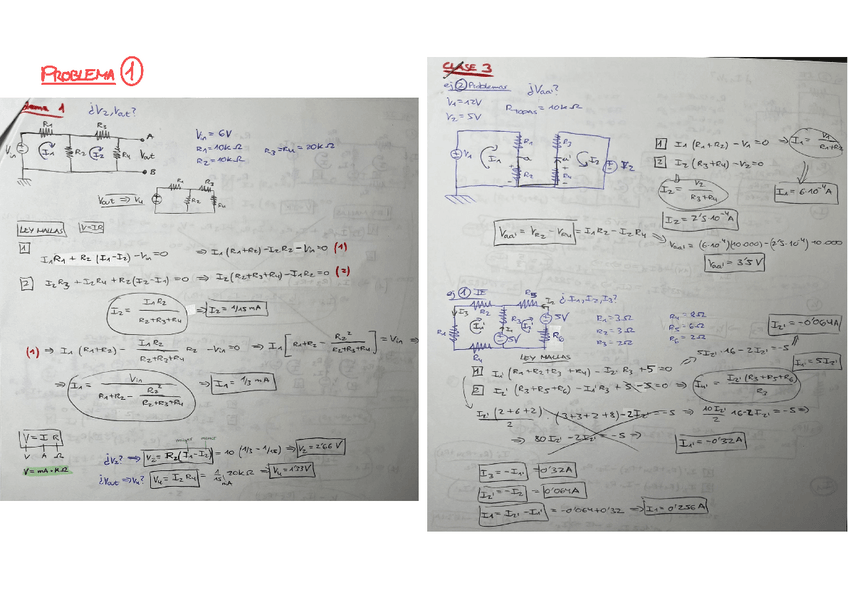 PROBLEMA 1
¿V2, Vout?
R1
R3
A
Vin
I1
R2
I2
R4
Vout
B
Vin = 6V
R1 = 10kΩ
R2 = 10kΩ
R3 = R4 = 20kΩ
Vout ⇒ V4
R1
R3
R2
R4
LEY MALLAS
V=IR
1
I1R1 + R2 (I1-I2) - Vin = 0 ⇒ I1 (R1+R2) - I2R2 - Vin = 0 (1)
2
I2R3 + I2R4 + R2 (I2-I1) = 0 ⇒ I2 (R2+R3+R4) - I1R2 = 0 (2)
I2 = I1R2 / R2+R3+R4 ⇒ I2 = 1/15 mA
(1) ⇒ I1 (R1+R2) - I1R2 / R2+R3+R4 R2 - Vin = 0 ⇒ I1 [R1+R2 - R2² / R2+R3+R4] = Vin ⇒
⇒ I1 = Vin / R1+R2 - R2² / R2+R3+R4 ⇒ I1 = 1/3 mA
V = I R
V A Ω
V = mA·KΩ
¿V2? ⇒ V2 = R2 (I1-I2) = 10 (1/3 - 1/15) ⇒ V2 = 2'66 V
¿Vout ⇒ V4? V4 = I2 R4 = 1/15 mA · 20kΩ ⇒ V4 = 1'33 V
CLASE 3
ej 2 Problemas ¿Vaa'?
V1 = 12V
V2 = 5V
Rtodas = 10kΩ
V1
I1
R1
a
R2
R3
a'
R4
I2
V2
1 I1 (R1+R2) - V1 = 0 ⇒ I1 = V1 / R1+R2
2 I2 (R3+R4) - V2 = 0
I2 = V2 / R3+R4
I1 = 6·10⁻⁴ A
I2 = 2'5·10⁻⁴ A
Vaa' = VR2 - VR4 = I1R2 - I2R4 ⇒
Vaa' = (6·10⁻⁴)(10.000) - (2'5·10⁻⁴)·10.000
Vaa' = 3'5 V
ej 1 IE ¿I1, I2, I3?
R2
R5
I3
R1
I1'
R3
I2'
5V
5V
R6
R4
R1 = 3Ω
R2 = 3Ω
R3 = 2Ω
R4 = 8Ω
R5 = 6Ω
R6 = 2Ω
I2' = -0'064 A
LEY MALLAS
5I2'·16 - 2I2' = -5
I1' = 5I2'
1 I1' (R1+R2+R3+R4) - I2'·R3 + 5 = 0
2 I2' (R3+R5+R6) - I1'R3 + 5 - 5 = 0 ⇒ I1' = I2' (R3+R5+R6) / R3
I2' (2+6+2) / 2 (3+3+2+8) - 2I2' = -5 ⇒ 10I2' / 2 · 16 - 2I2' = -5 ⇒
⇒ 80I2' - 2I2' = -5 ⇒
I1' = -0'32 A
I3 = -I1' = 0'32 A
I2 = -I2' = 0'064 A
I1 = I2' - I1' = -0'064 + 0'32 ⇒ I1 = 0'256 A